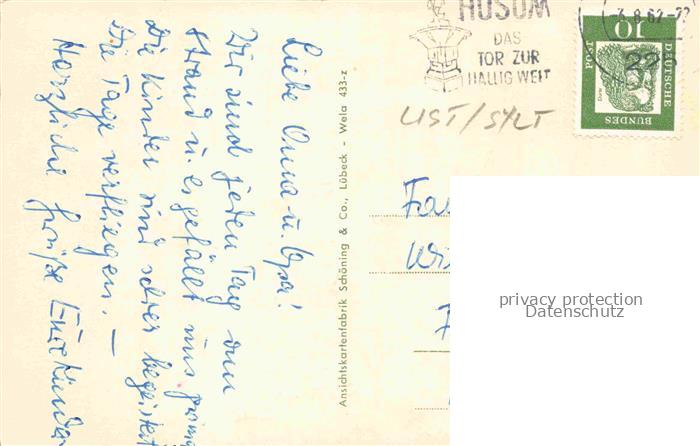 Liebe Oma u. Opa!
Wir sind jeden Tag am
Strand u. es gefällt uns prima
Die Kinder sind sehr begeistert
Die Tage verfliegen. —
Herzliche Grüße Eure Kinder
Ansichtskartenfabrik Schöning & Co., Lübeck - Wela 433-z
HUSUM
DAS
TOR ZUR
HALLIG WELT
LIST/SYLT
-3.8.62-
22
10
DEUTSCHE
BUNDES
POST
Dürer
Fa
Wi
privacy protection
Datenschutz